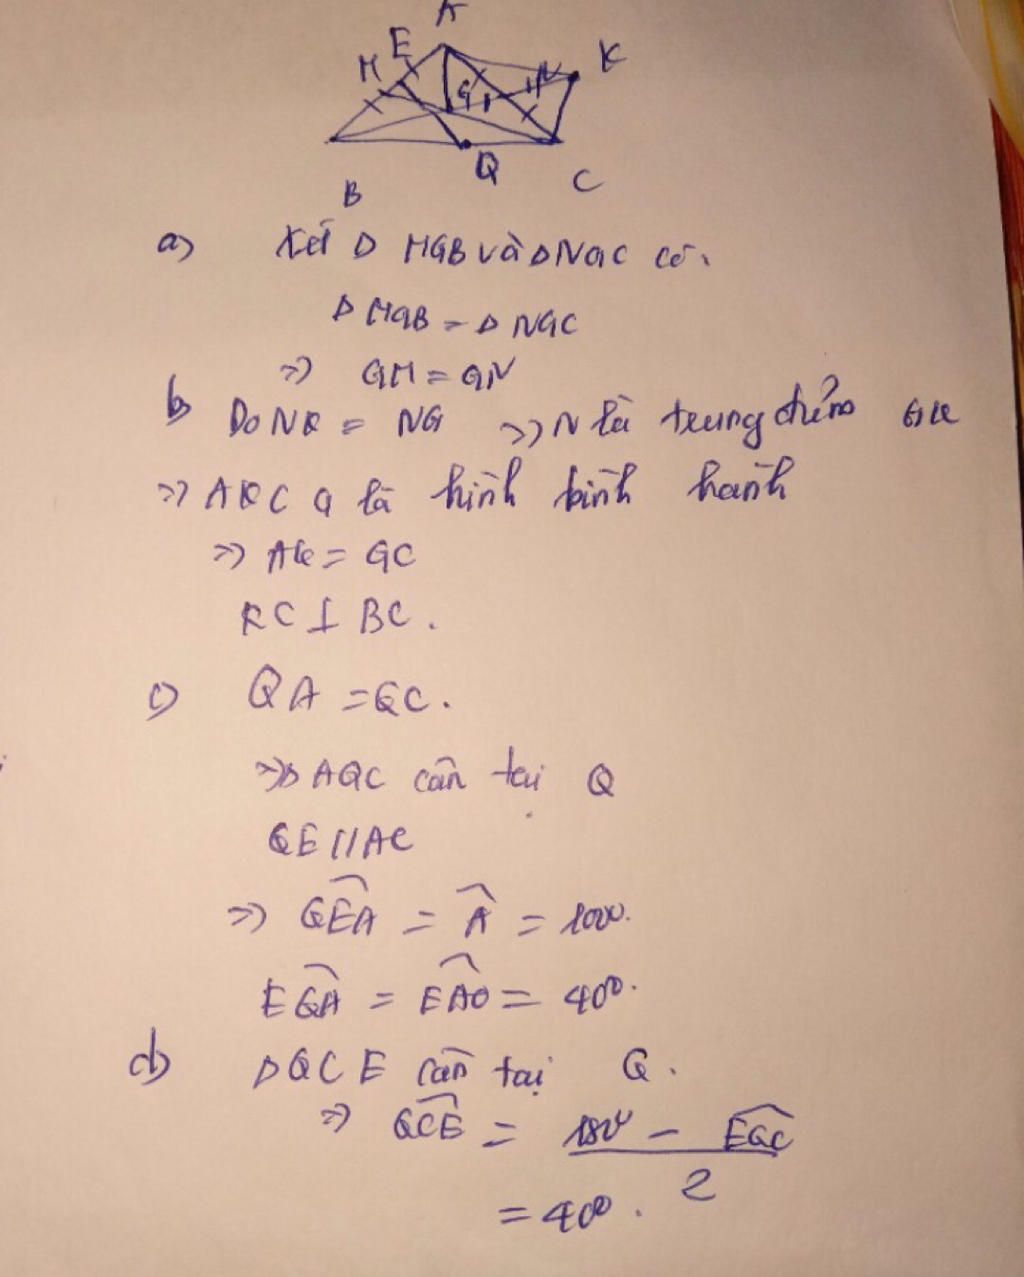 A
E
K
M
N
G
Q
C
B
a) Xét Δ MGB và Δ NGC có.
Δ MGB = Δ NGC
=> GM = GN
b) Do NK = NG => N là trung điểm GK
=> AKCG là hình bình hành
=> AK = GC
KC ⊥ BC.
c) QA = QC.
=> Δ AQC cân tại Q
QE // AC
=> QEA = Â = 100°.
EQA = EAQ = 40°.
d) Δ QCE cân tại Q.
=> QCE = 180° - EQC
2
= 40°.